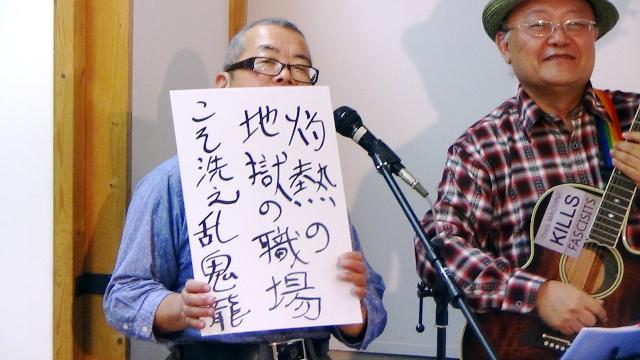 灼熱の
地獄の職場
こそ洗え乱鬼龍
THIS MACHINE
KILLS
FASCISTS